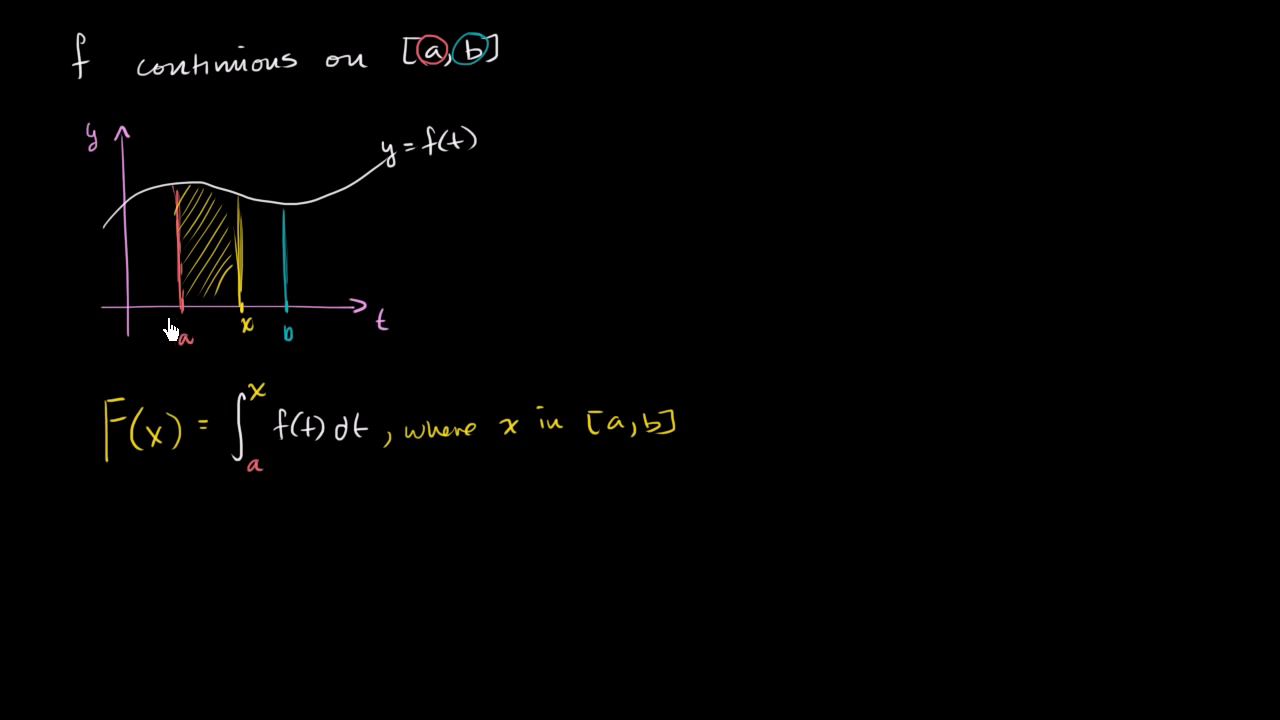 f continuous on [a,b]
y
y = f(t)
t
a
x
b
F(x) = ∫ₐˣ f(t) dt, where x in [a,b]